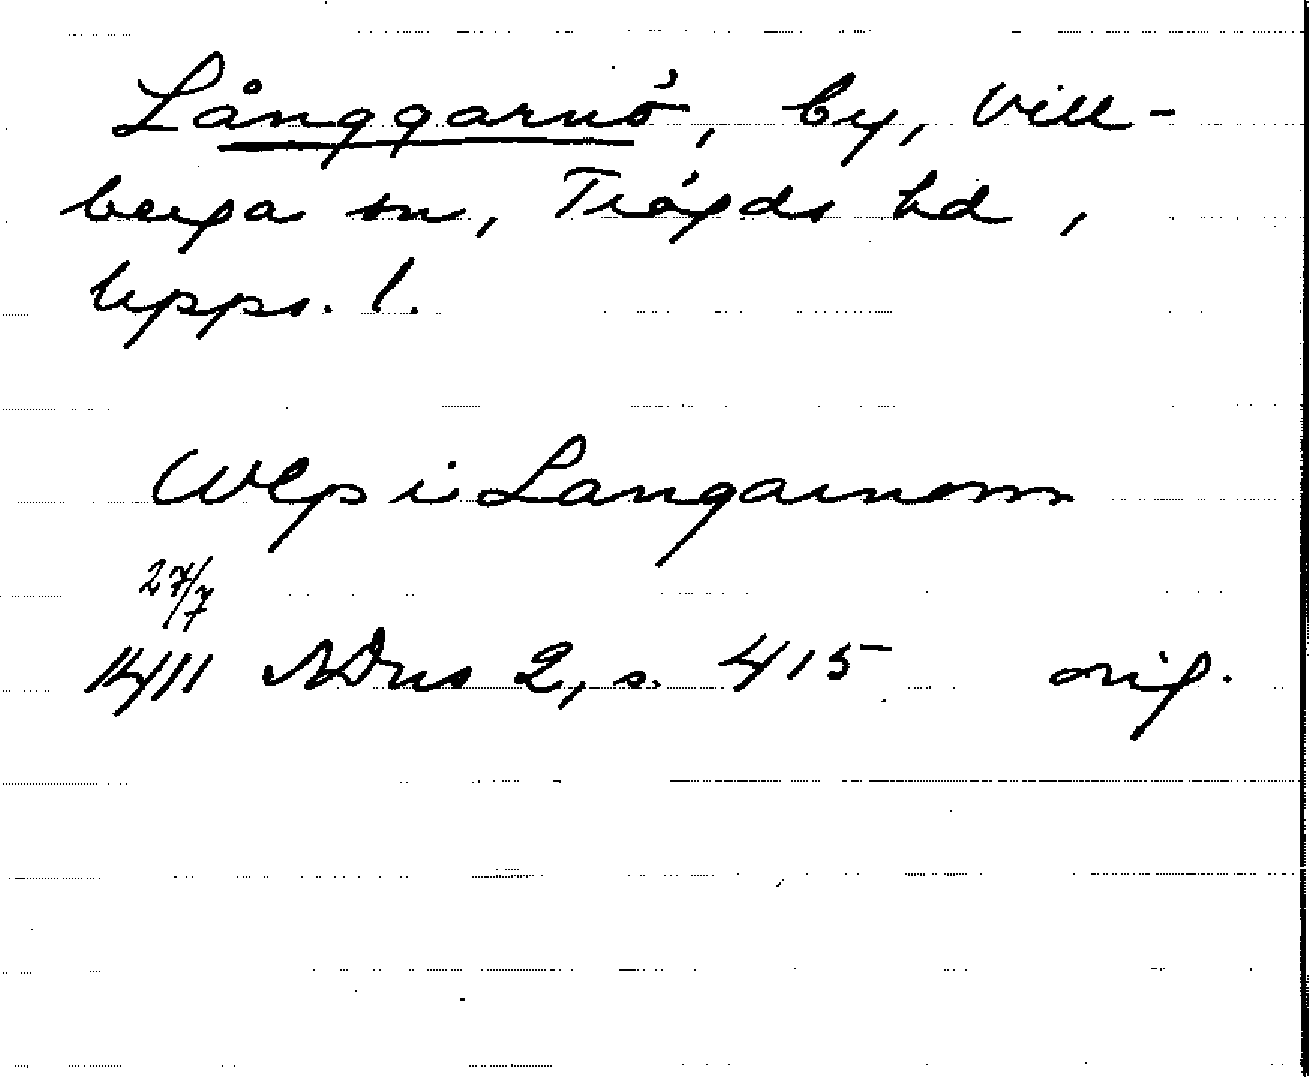 Långgarnö, by, Vill-
berga sn, Trögds hd,
Upps. l.
Vlp i Langarnom
27/7
1411 SDns 2, s. 415 orig.